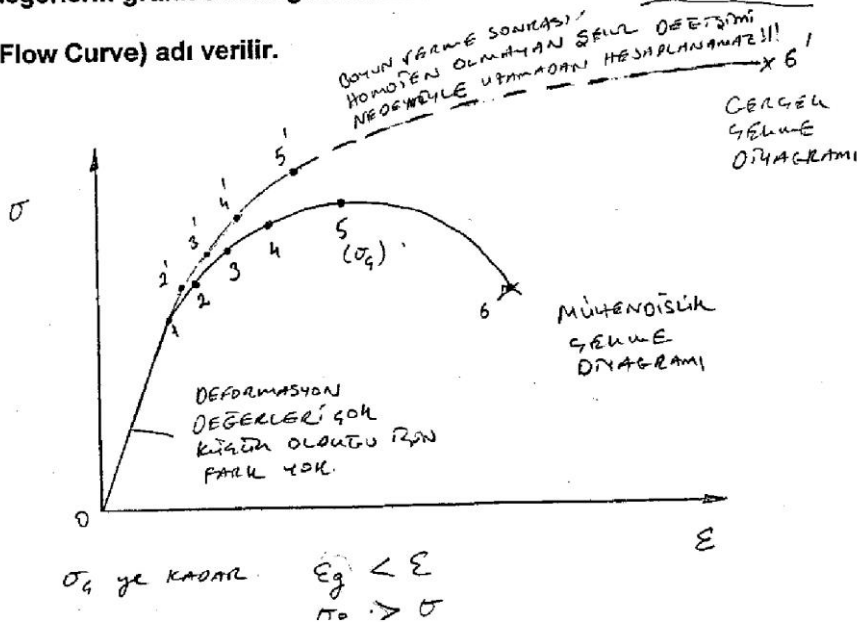 (Flow Curve) adı verilir.
BOYUN VERME SONRASI,
HOMOJEN OLMAYAN ŞEKİL DEĞİŞİMİ
NEDENİYLE UZAMADAN HESAPLANAMAZ!!!
6'
GERÇEK
ÇEKME
DİYAGRAMI
5'
4'
3'
2'
σ
1
2
3
4
5
(σç)
6
MÜHENDİSLİK
ÇEKME
DİYAGRAMI
DEFORMASYON
DEĞERLERİ ÇOK
KÜÇÜK OLDUĞU İÇİN
FARK YOK.
0
ε
σç ye KADAR εg < ε
> σ